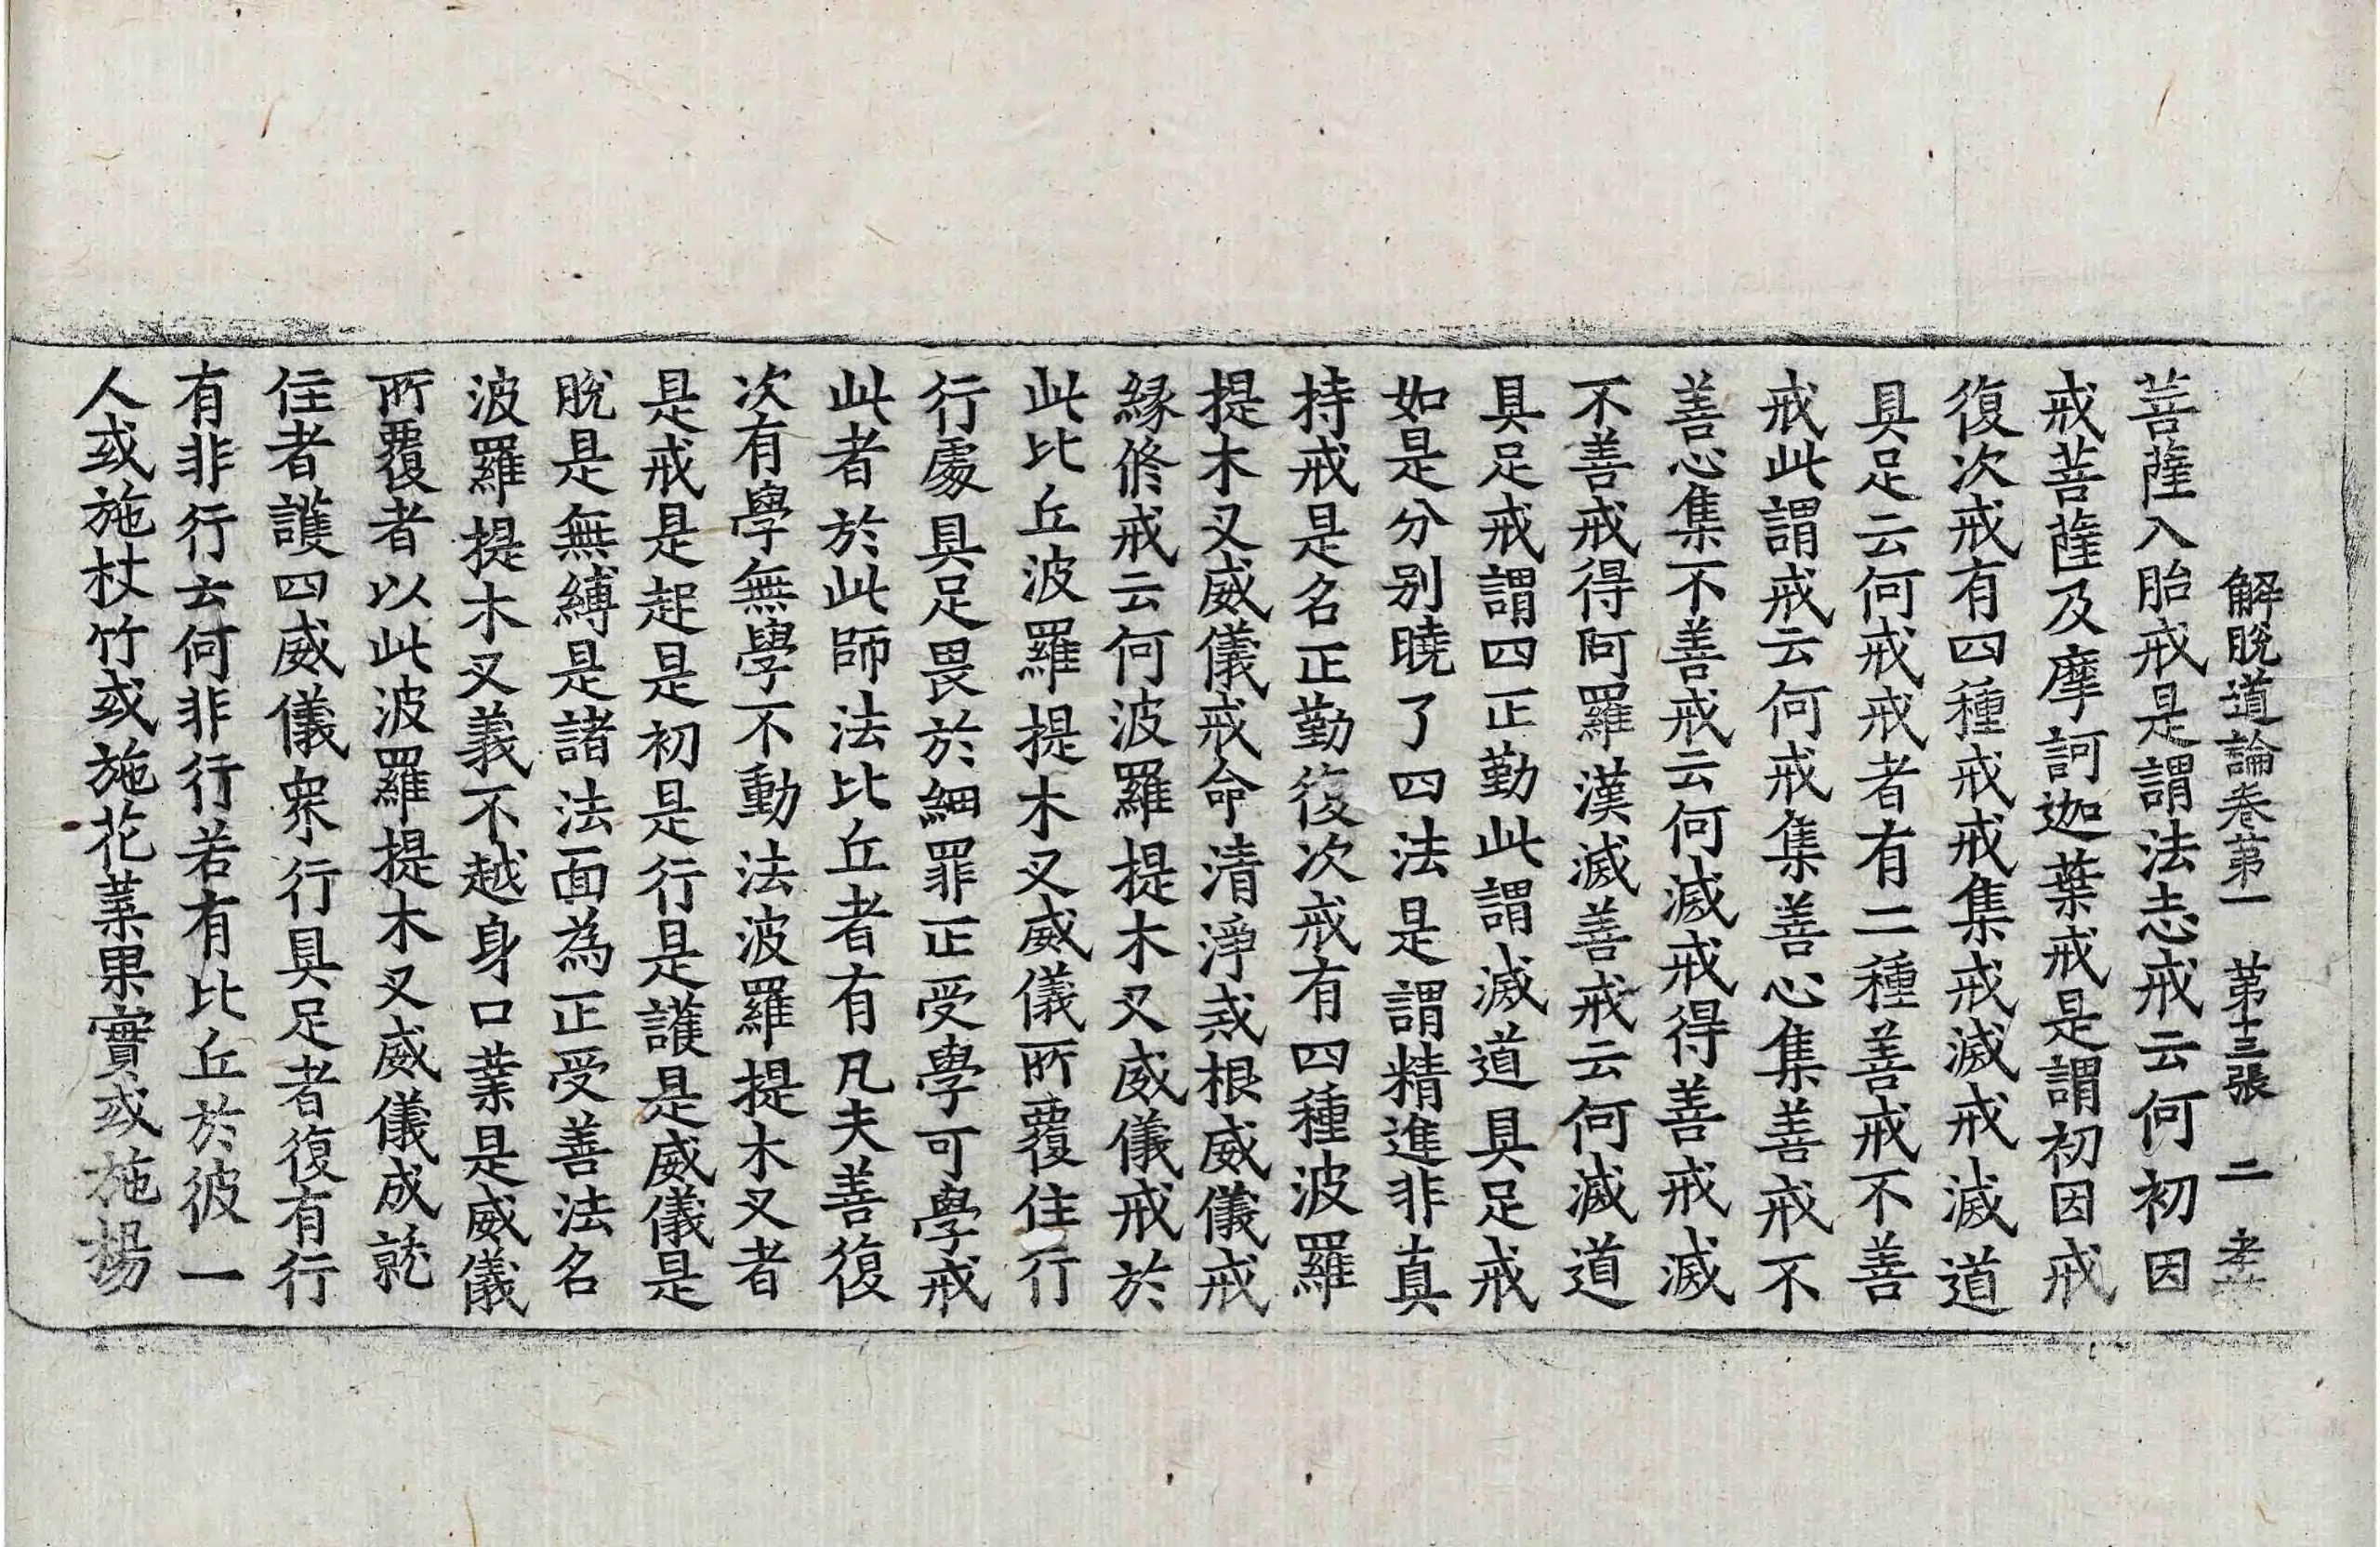 解脫道論卷第一　第十三張　二　孝
菩薩入胎戒是謂法志戒云何初因
戒菩薩及摩訶迦葉戒是謂初因戒
復次戒有四種戒戒集戒滅戒滅道
具足云何戒戒者有二種善戒不善
戒此謂戒云何戒集善心集善戒不
善心集不善戒云何滅戒得善戒滅
不善戒得阿羅漢滅善戒云何滅道
具足戒謂四正勤此謂滅道具足戒
如是分別曉了四法是謂精進非真
持戒是名正勤復次戒有四種波羅
提木叉威儀戒命清淨戒根威儀戒
緣修戒云何波羅提木叉威儀戒於
此比丘波羅提木叉威儀所覆住行
行處具足畏於細罪正受學可學戒
此者於此師法比丘者有凡夫善復
次有學無學不動法波羅提木叉者
是戒是起是初是行是護是威儀是
脫是無縛是諸法面為正受善法名
波羅提木叉義不越身口業是威儀
所覆者以此波羅提木叉威儀成就
住者護四威儀眾行具足者復有行
有非行云何非行若有比丘於彼一
人或施杖竹或施花葉果實或施楊